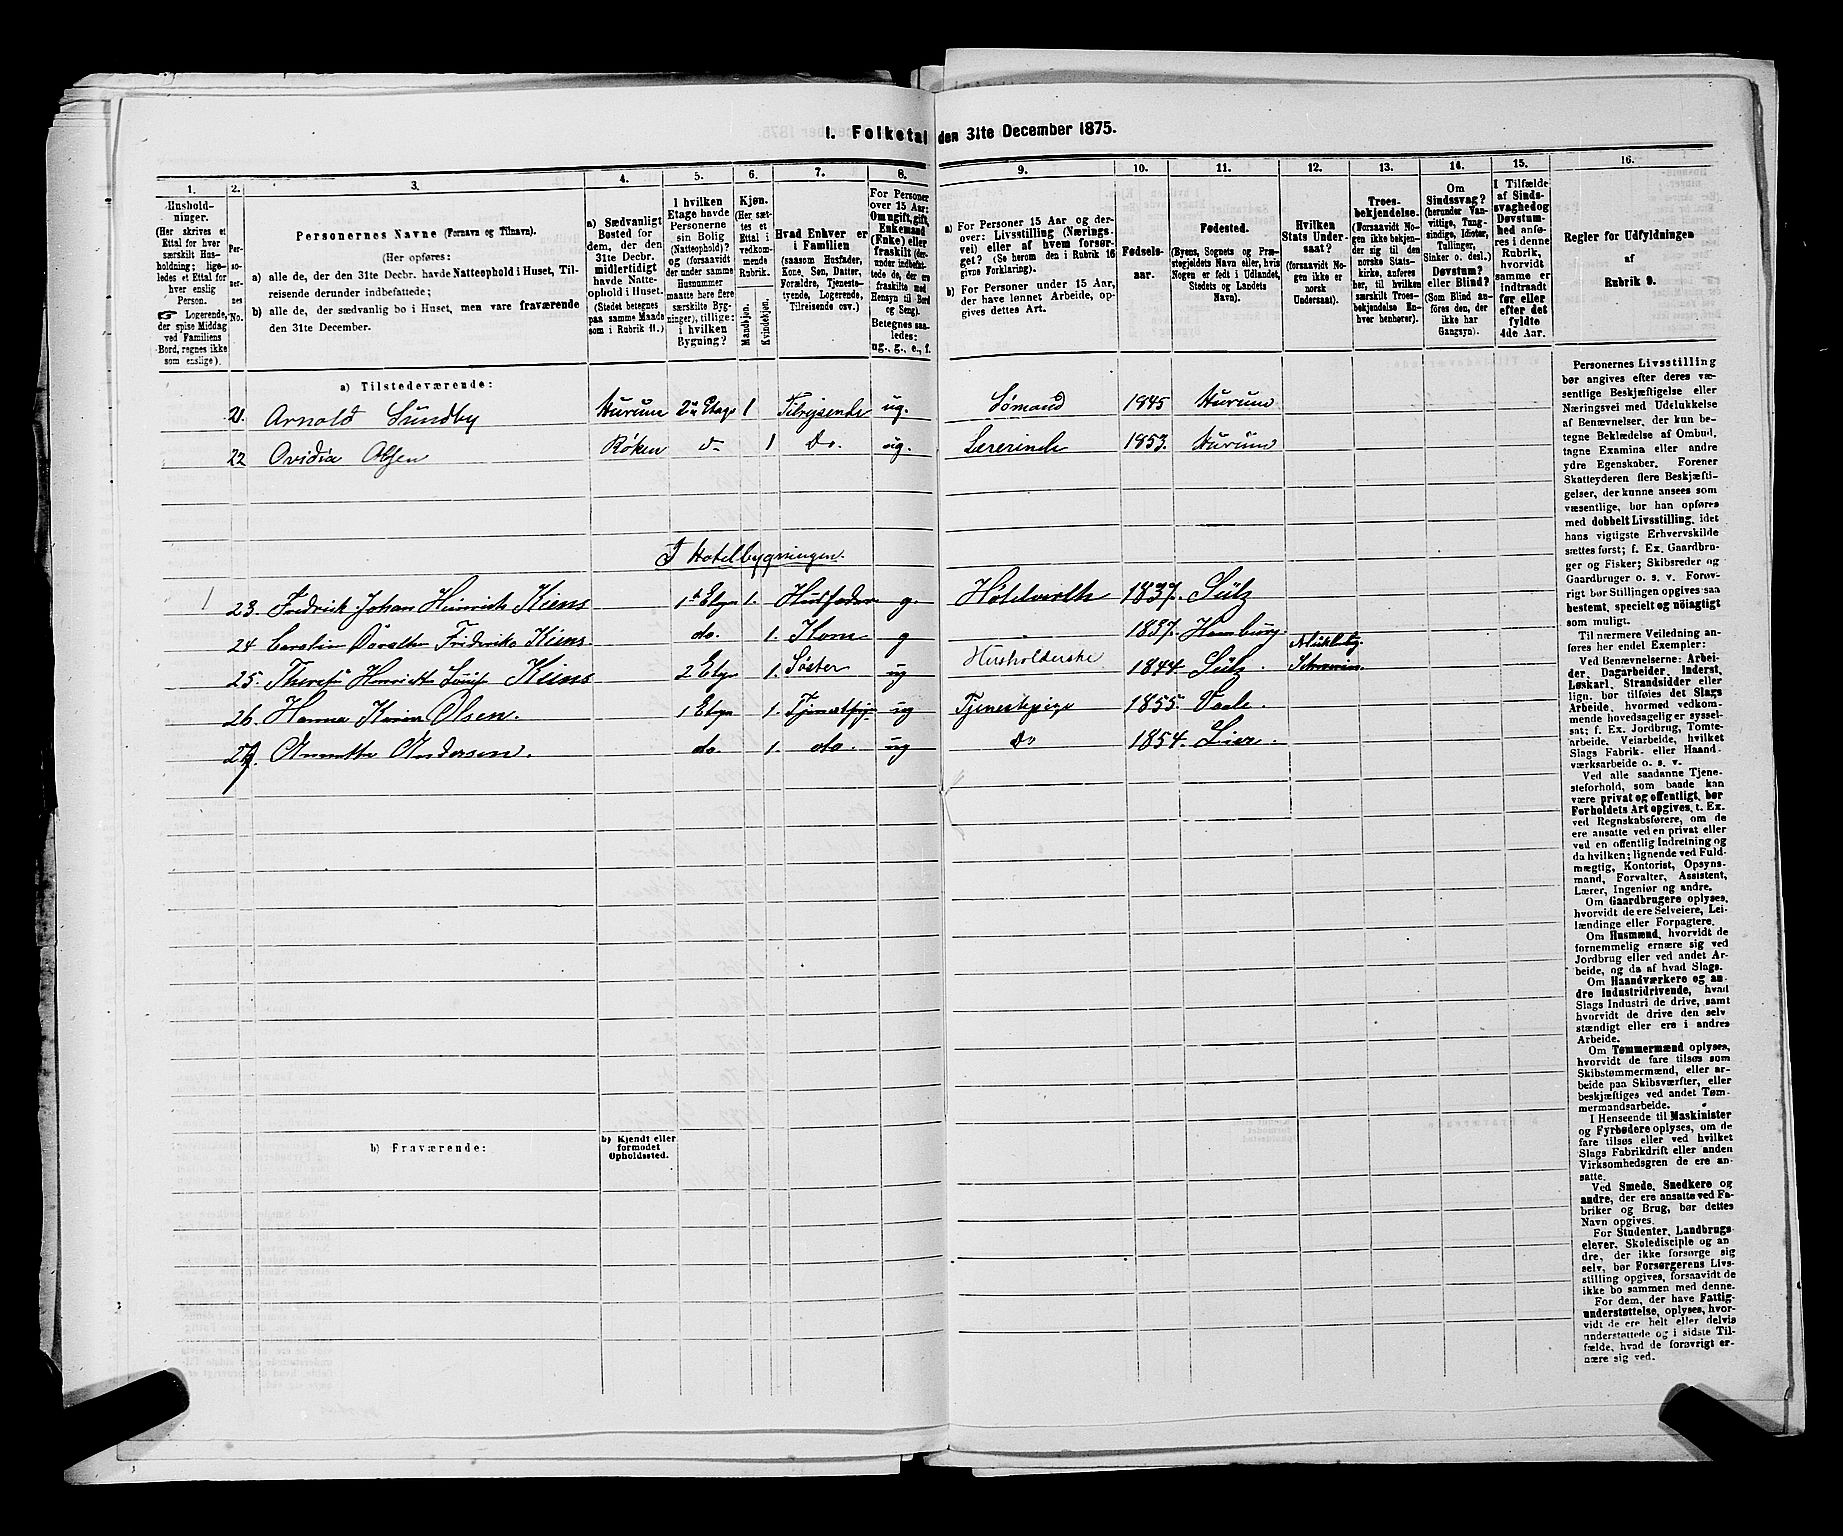 1. Folketal den 31te December 1875.
1. 2. 3. 4. 5. 6. 7. 8. 9. 10. 11. 12. 13. 14. 15. 16.
Hushold-
ninger.
(Her skrives et
Ettal for hver
særskilt Hus-
holdning; lige-
ledes et Ettal for
hver enslig
Person.
☞ Logerende,
der spise Middag
ved Familiens
Bord, regnes ikke
som enslige).
Per-
so-
ner-
nes
No.
Personernes Navne (Fornavn og Tilnavn).
(Her opføres:
a) alle de, der den 31te Decbr. havde Natteophold i Huset, Til-
reisende derunder indbefattede;
b) alle de, der sædvanlig bo i Huset, men vare fraværende
den 31te December.
a) Sædvanligt
Bosted for
dem, der den
31te Decbr.
midlertidigt
havde Natte-
ophold i Huset.
(Stedet betegnes
paa samme Maade
som i Rubrik 11.)
I hvilken
Etage havde
Personerne
sin Bolig
(Natteophold)?
og (forsaavidt
der under samme
Husnummer
maatte høre flere
særskilte Byg-
ninger), tillige:
i hvilken
Bygning?
Kjøn.
(Her sæt-
tes et
Ettal i
vedkom-
mende
Rubrik.
Mandkjøn.
Kvindekjøn.
Hvad Enhver er
i Familien
(saasom Husfader,
Kone, Søn, Datter,
Forældre, Tjeneste-
tyende, Logerende,
Tilreisende osv.)
For Personer
over 15 Aar:
Om ugift, gift,
Enkemand
(Enke) eller
fraskilt (der-
under indbefat-
tede de, der ere
fraskilte med
Hensyn til Bord
og Seng).
Betegnes saa-
ledes:
ug., g., e., f.
a) For Personer 15 Aar og der-
over: Livsstilling (Nærings-
vei) eller af hvem forsør-
get? (Se herom den i Rubrik 16
givne Forklaring).
b) For Personer under 15 Aar,
der have lønnet Arbeide, op-
gives dettes Art.
Fødsels-
aar.
Fødested.
(Byens, Sognets og Præ-
stegjeldets Navn eller, hvis
Nogen er født i Udlandet,
Stedets og Landets
Navn).
Hvilken
Stats Under-
saat?
(forsaavidt No-
gen ikke er
norsk
Undersaat).
Troes-
bekjendelse.
(Forsaavidt No-
gen ikke bekjen-
der sig til den
norske Stats-
kirke, anføres
her, til hvilken
særskilt Troes-
bekjendelse En-
hver henhører).
Om
Sindssvag?
(herunder Van-
vittige, Tung-
sindige, Idioter,
Tullinger,
Sinker o. desl.).
Døvstum?
eller Blind?
(Som Blind an-
føres den, der
ikke har
Gangsyn).
I Tilfælde
af Sinds-
svaghed og
Døvstum-
hed anfø-
res i denne
Rubrik,
hvorvidt
samme er
indtraadt
før eller
efter det
fyldte
4de Aar.
Regler for Udfyldningen
af
Rubrik 9.
a) Tilstedeværende:
21. Arnold Sundby Hurum 2n Etage 1 Tilreisende ug. Sømand 1845 Hurum
22 Ovidia Olsen Røken d- 1 Do. ug. Lærerinde 1853. Hurum
I Hotelbygningen.
1 23. Fredrik Johan Heinrich Kiens 1 Etge 1. Husfader g. Hotelverth 1837. Sülz
24 Carolin Dorothe Fridrike Kiens. do. 1. Kone g 1837. Hamburg.
25. Therese Henriette Louise Kiens 2 Etge 1. Søster ug Husholderske 1844. Sülz. Meklebg. Schwerin
26. Hanna Karine Olsen. 1 Etge 1. Tjenestpige ug Tjenestepige 1855. Vaale.
27. Annette Andersen. do 1. do. ug Do 1854. Lier.
b) Fraværende:
b) Kjendt eller
formodet
Opholdssted.
Personernes Livsstilling
bør angives efter deres væ-
sentlige Beskjæftigelse eller
Næringsvei med Udelukkelse
af Benævnelser, der kun be-
tegne Beklædelse af Ombud,
tagne Examina eller andre
ydre Egenskaber. Forener
Skatteyderen flere Beskjæfti-
gelser, der kunne ansees som
væsentlige, bør han opføres
med dobbelt Livsstilling, idet
hans vigtigste Erhvervskilde
sættes først; f. Ex. Gaardbru-
ger og Fisker; Skibsreder og
Gaardbruger o. s. v. Forøv-
rigt bør Stillingen opgives saa
bestemt, specielt og nøiagtigt
som muligt.
Til nærmere Veiledning an-
føres her endel Exempler:
Ved Benævnelserne: Arbei-
der, Dagarbeider, Inderst,
Løskarl, Strandsidder eller
lign. bør tilføies det Slags
Arbeide, hvormed vedkom-
mende hovedsagelig er syssel-
sat; f. Ex. Jordbrug, Tomte-
arbeide, Veiarbeide, hvilket
Slags Fabrik- eller Haand-
værksarbeide o. s. v.
Ved alle saadanne Tjene-
steforhold, som baade kan
være privat og offentligt, bør
Forholdets Art opgives, t. Ex.
ved Regnskabsførere, om de
ere ansatte ved en privat eller
ved en offentlig Indretning og
da hvilken; lignende ved Fuld-
mægtig, Kontorist, Opsyns-
mand, Forvalter, Assistent,
Lærer, Ingeniør og andre.
Om Gaardbrugere oplyses,
hvorvidt de ere Selveiere, Lei-
lændinge eller Forpagtere.
Om Husmænd, hvorvidt de
fornemmelig ernære sig ved
Jordbrug eller ved andet Ar-
beide, og da af hvad Slags.
Om Haandværkere og an-
dre Industridrivende, hvad
Slags Industri de drive, samt
hvorvidt de drive den selv-
stændigt eller ere i andres
Arbeide.
Om Tømmermænd oplyses,
hvorvidt de fare tilsøs som
Skibstømmermænd, eller ar-
beide paa Skibsværfter, eller
beskjæftiges ved andet Tøm-
mermandsarbeide.
I Henseende til Maskinister
og Fyrbødere oplyses, om de
fare tilsøs eller ved hvilket
Slags Fabrikdrift eller anden
Virksomhedsgren de ere an-
satte.
Ved Smede, Snedkere og
andre, der ere ansatte ved Fa-
briker og Brug, bør dettes
Navn opgives.
For Studenter, Landbrugs-
elever, Skoledisciple og an-
dre, der ikke forsørge sig
selv, bør Forsørgerens Livs-
stilling opgives, forsaavidt de
ikke bo sammen med denne.
For dem, der have Fattig-
understøttelse, oplyses, hvor-
vidt de ere helt eller delvis
understøttede og i sidste Til-
fælde, hvad de forøvrigt er-
nære sig ved.